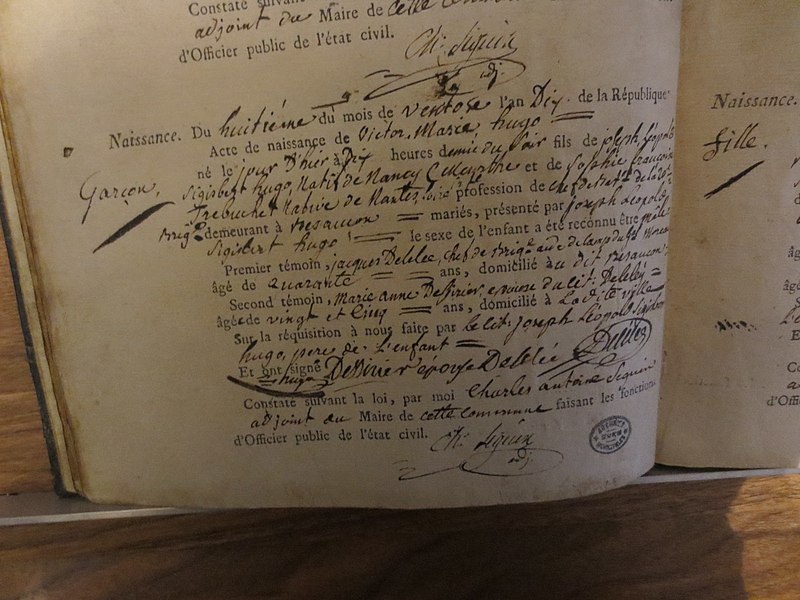 Constate suivant
adjoint du Maire de cette
d'Officier public de l'état civil.
Ch. Seguin
adj.
Naissance. Du huitième du mois de ventose l'an Dix de la République
Garçon.
Acte de naissance de Victor, Marie, hugo
né le jour D'hier à Dix heures demie du soir fils de joseph, Léopold
Sigisbert hugo, Natif de Nancy et de Sophie francoise
Trebuchet Native de Nantes, profession de chef de
Brig.e demeurant à Besancon mariés, présenté par joseph Léopold
Sigisbert hugo le sexe de l'enfant a été reconnu être male
Premier témoin, jacques Delelée, chef de Brig. aide de camp du
âgé de quarante ans, domicilié au dit Besancon
Second témoin, Marie anne Dessirier epouse du cit. Delelée
âgée de vingt et cinq ans, domicilié à La dite ville
Sur la réquisition à nous faite par le cit. joseph Léopold Sigisbert
hugo, pere de L'enfant
Et ont signé
hugo Dessirier épouse Delelée Delelée
Constaté suivant la loi, par moi Charles antoine Seguin
adjoint du Maire de cette commune faisant les fonctions
d'Officier public de l'état civil.
Ch. Seguin
adj.
Naissance.
fille.
né
âgé
âgé
Et
C
a
d'Offici